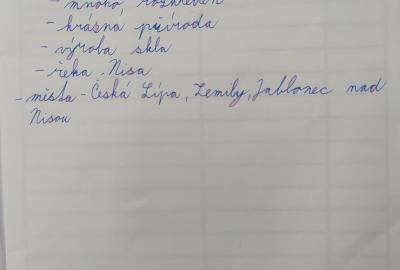 - mnoho rozhleden
- krásná příroda
- výroba skla
- řeka - Nisa
- města - Česká Lípa, Zemily, Jablonec nad
Nisou